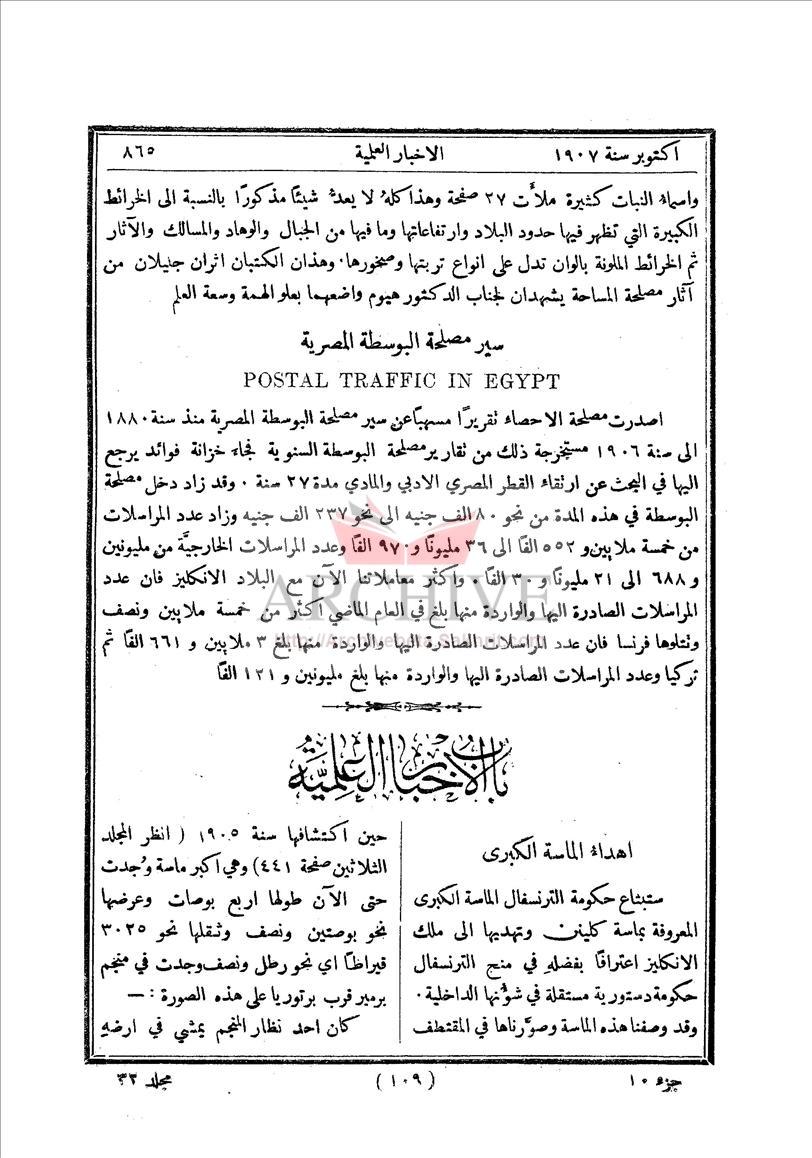 اكتوبر سنة ١٩٠٧ الاخبار العلمية ٨٦٥
واسماءُ النبات كثيرة ملأَت ٢٧ صفحة وهذا كلهُ لا يعدُّ شيئًا مذكورًا بالنسبة الى الخرائط
الكبيرة التي تظهر فيها حدود البلاد وارتفاعاتها وما فيها من الجبال والوهاد والمسالك والآثار
ثم الخرائط الملونة بالوان تدل على انواع تربتها وصخورها ٠ وهذان الكتبان اثران جليلان من
آثار مصلحة المساحة يشهدان لجناب الدكتور هيوم واضعهما بعلو الهمة وسعة العلم
سير مصلحة البوسطة المصرية
POSTAL TRAFFIC IN EGYPT
اصدرت مصلحة الاحصاء تقريرًا مسهبًا عن سير مصلحة البوسطة المصرية منذ سنة ١٨٨٠
الى سنة ١٩٠٦ مستخرجة ذلك من تقارير مصلحة البوسطة السنوية فجاء خزانة فوائد يرجع
اليها في البحث عن ارتقاء القطر المصري الادبي والمادي مدة ٢٧ سنة ٠ وقد زاد دخل مصلحة
البوسطة في هذه المدة من نحو ٨٠ الف جنيه الى نحو ٢٣٧ الف جنيه وزاد عدد المراسلات
من خمسة ملايين و ٥٥٢ الفًا الى ٣٦ مليونًا و ٩٧٠ الفًا وعدد المراسلات الخارجيَّة من مليونين
و ٦٨٨ الى ٢١ مليونًا و ٣٠ الفًا ٠ واكثر معاملاتنا الآن مع البلاد الانكليز فان عدد
المراسلات الصادرة اليها والواردة منها بلغ في العام الماضي اكثر من خمسة ملايين ونصف
وتتلوها فرنسا فان عدد المراسلات الصادرة اليها والواردة منها بلغ ٣ ملايين و ٦٦١ الفًا ثم
تركيا وعدد المراسلات الصادرة اليها والواردة منها بلغ مليونين و ١٢١ الفًا
ARCHIVE
باب الاخبار العلميَّة
اهداءُ الماسة الكبرى
ستبتاع حكومة الترنسفال الماسة الكبرى
المعروفة بماسة كلينن وتهديها الى ملك
الانكليز اعترافًا بفضلهِ في منح الترنسفال
حكومة دستورية مستقلة في شؤُنها الداخلية ٠
وقد وصفنا هذه الماسة وصوَّرناها في المقتطف
حين اكتشافها سنة ١٩٠٥ ( انظر المجلد
الثلاثين صفحة ٤٤١) وهي اكبر ماسة وُجدت
حتى الآن طولها اربع بوصات وعرضها
نحو بوصتين ونصف وثقلها نحو ٣٠٢٥
قيراطًا اي نحو رطل ونصف وجدت في منجم
برمير قرب برتوريا على هذه الصورة : —
كان احد نظار المنجم يمشي في ارضهِ
جزء ١٠ (١٠٩) مجلد ٣٢